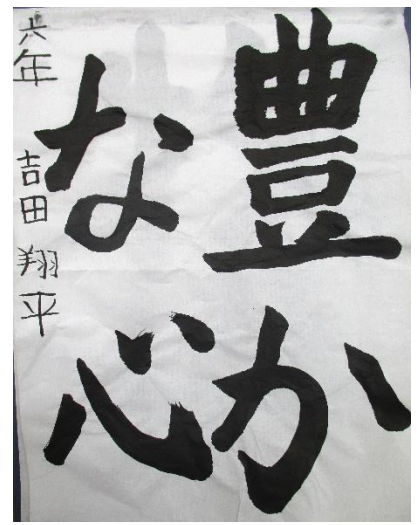 豊か
な心
六年 吉田 翔平